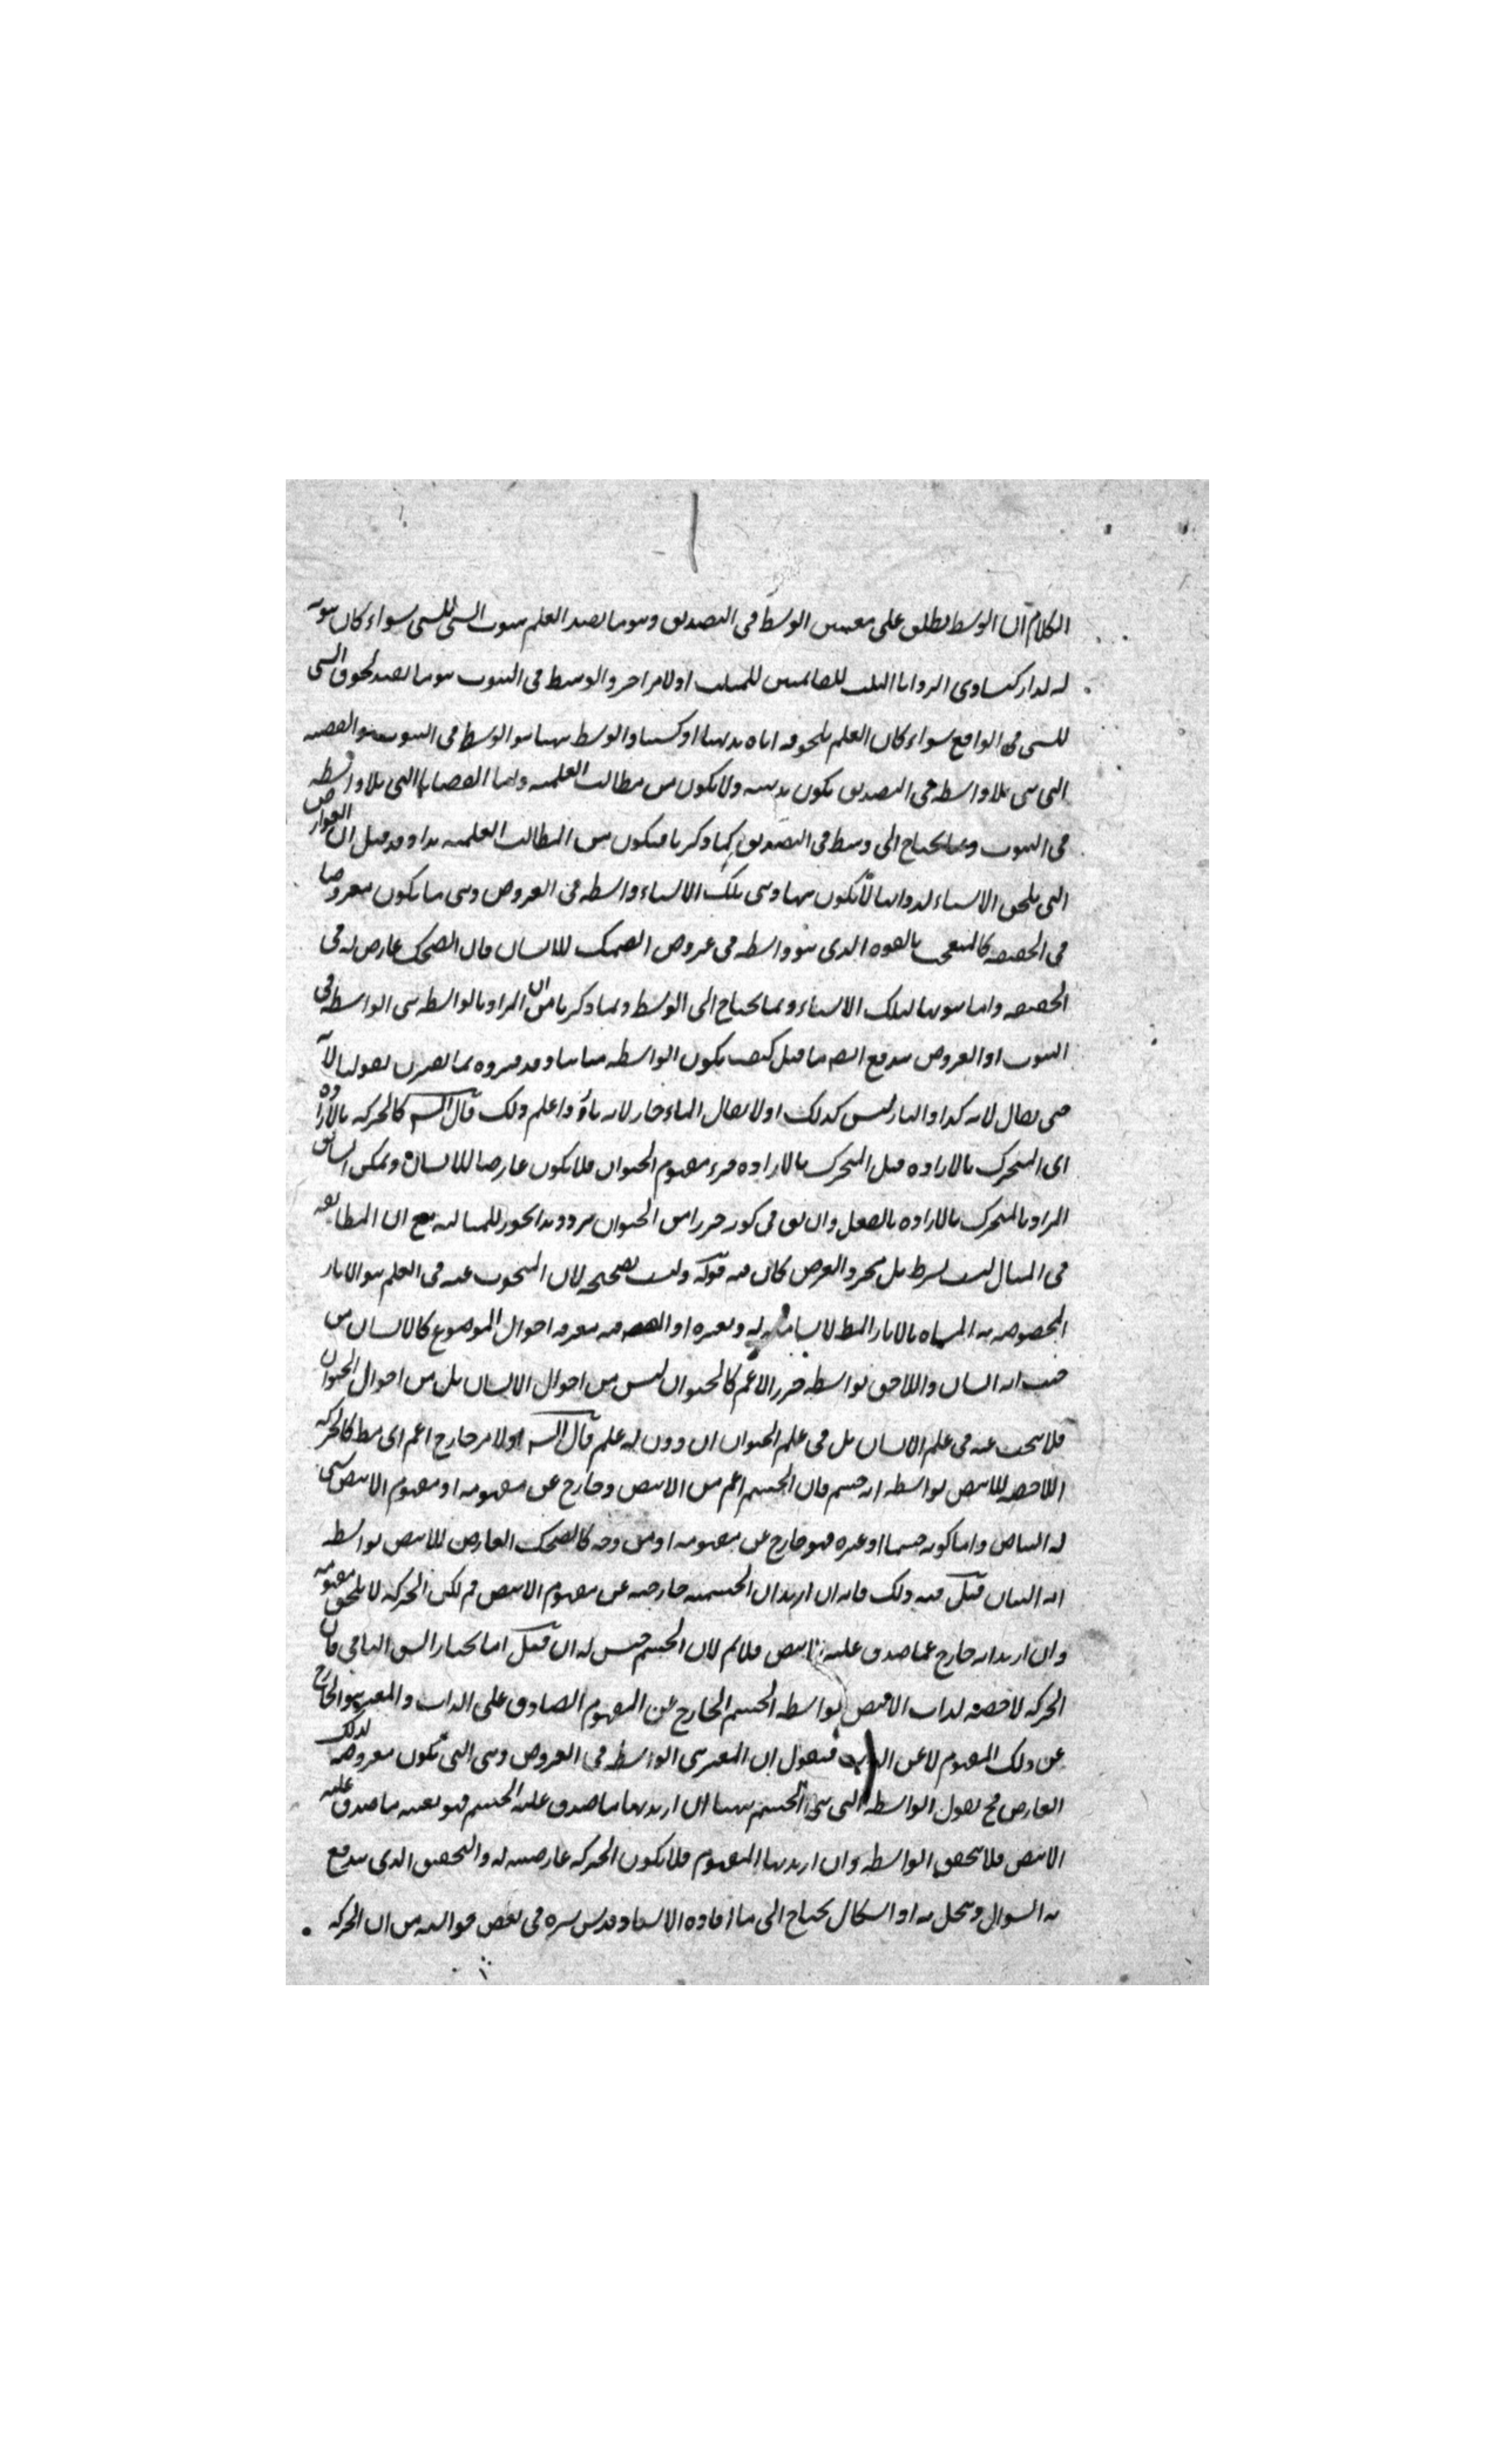 الكلام ان الوسط يطلق على معنيين الوسط فى التصديق وهو ما يفيد العلم بثبوت الشى للشى سواء كان ثبوته
له لذاته كتساوى الزوايا الثلث للقائمتين للمثلث او لامر اخر والوسط فى الثبوت هو ما يفيد لحوق الشى
للشى فى الواقع سواء كان العلم بلحوقه اياه بديهيا او كسبيا والوسط ههنا هو الوسط فى الثبوت والقضية
التى هى بلا واسطة فى التصديق يكون بديهية ولا يكون من مطالب العلمية واما القضايا التى بلا واسطة
فى الثبوت يحتاج الى وسط فى التصديق كما ذكرنا فيكون من المطالب العلمية هذا وقد قيل ان العوارض
التى يلحق الاشياء لذواتها لا يكون بينها وبين تلك الاشياء واسطة فى العروض وهى ما يكون معروضا
فى الحقيقة كالتعجب بالقوة الذى هو واسطة فى عروض الضحك للانسان فان الضحك عارض له فى
الحقيقة واما ثبوتها لتلك الاشياء ربما يحتاج الى الوسط وبما ذكرنا من ان المراد بالواسطة هى الواسطة فى
الثبوت او العروض يندفع ايضا ما قيل كيف يكون الواسطة مباينا وقد فسروه بما يقترن بقولنا لانه
حين يقال لانه كذا والنار ليس كذلك اذ لا يقال الماء حار لانه نار واعلم ذلك قال الش كالحركة بالارادة
اى المتحرك بالارادة قيل المتحرك بالارادة جزء مفهوم الحيوان فلا يكون عارضا للانسان ويمكن ان يقال
المراد بالمتحرك بالارادة بالفعل وان بقى فى كونه جزءا من الحيوان تردد هذا يجوز للمباينة مع ان المطابقة
فى المثال ليست بشرط بل مجرد الفرض كاف فيه قوله وليست بصحيحة لان المبحوث عنه فى العلم هو الاثار
المخصوصة به المسماة بالاثار المط لا شاملة له ولغيره اذ المقصود فيه معرفة احوال الموضوع كالانسان من
حيث انه انسان واللاحق بواسطة جزء الاعم كالحيوان ليس من احوال الانسان بل من احوال الحيوان
فلا يبحث عنه فى علم الانسان بل فى علم الحيوان ان دون له علم قال الش او لامر خارج اعم اى مط كالحركة
اللاحقة للابيض بواسطة انه جسم فان الجسم اعم من الابيض وخارج عن مفهومه اذ مفهوم الابيض شى
له البياض واما كونه جسما او غيره فهو خارج عن مفهومه او من وجه كالضحك العارض للابيض بواسطة
انه انسان قيل فيه ذلك فانه ان اريد ان الجسمية خارجة عن مفهوم الابيض فم لكن الحركة لا يلحق مفهومه
وان اريد انه خارج عما صدق عليه الابيض فلا نم لان الجسم جنس له ان قيل انما يختار الشق الباقى فان
الحركة لاحقة لذات الابيض بواسطة الجسم الخارج عن المفهوم الصادق على الذات والمعتبر هو الخارج
عن ذلك المفهوم لا عن الذات فنقول ان المعتبر هى الواسطة فى العروض وهى التى يكون معروضة لذلك
العارض فح نقول الواسطة التى هى الجسم ههنا ان اريد بها ما صدق عليه الجسم فهو بعينه ما صدق عليه
الابيض فلا يتحقق الواسطة وان اريد بها المفهوم فلا يكون الحركة عارضة له والتحقيق الذى يندفع
به السوال وينحل به الاشكال يحتاج الى ما افاده الاستاد قدس سره فى بعض فوائده من ان الحركة